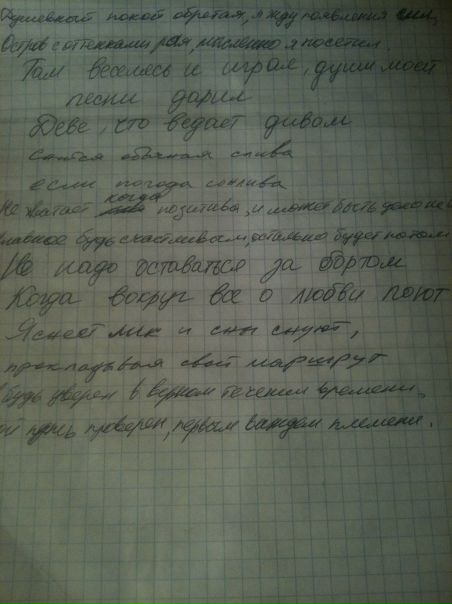 Душевный покой обретая, я жду появления сил,
Остров с оттенками рая, мысленно я посетил.
Там веселясь и играя, души моей
песни дарил
Деве, что ведает дивом
снится обычная слива
если погода сонлива
Не хватает когда позитива, и может быть дело не в
Главное будь счастливым, остальное будет потом
Не надо оставаться за бортом
Когда вокруг все о любви поют
Яснеет лик и сны снуют,
прокладывая свой маршрут
будь уверен в верном течении времени,
путь проверен, первым вождем племени.